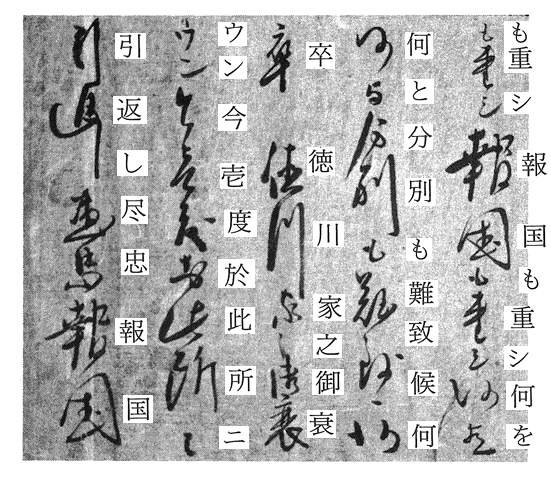 も重シ報国も重シ何を
何と分別も難致候何
卒 徳川家之御衰
ウン今壱度於此所ニ
引返し尽忠報国